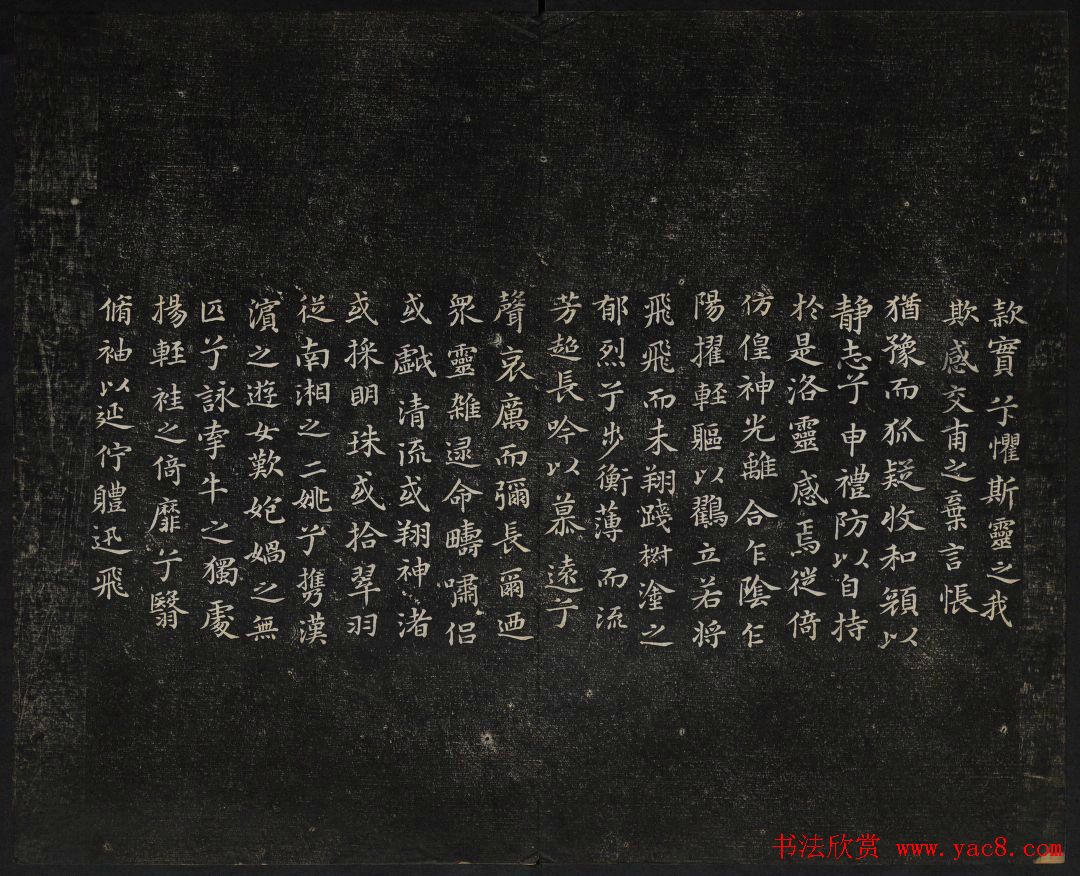 款實兮懼斯靈之我
欺感交甫之棄言悵
猶豫而狐疑收和顏以
静志兮申禮防以自持
於是洛靈感焉徙倚
彷徨神光離合乍陰乍
陽擢輕軀以鸛立若将
飛飛而未翔踐椒塗之
郁烈兮步衡薄而流
芳超長吟以慕遠兮
聲哀厲而彌長爾迺
眾靈雜遝命疇嘯侣
或戲清流或翔神渚
或採明珠或拾翠羽
從南湘之二姚兮攜漢
濱之遊女歎妃媧之無
匹兮詠牽牛之獨處
揚輕袿之倚靡兮翳
脩袖以延佇體迅飛
书法欣赏 www.yac8.com